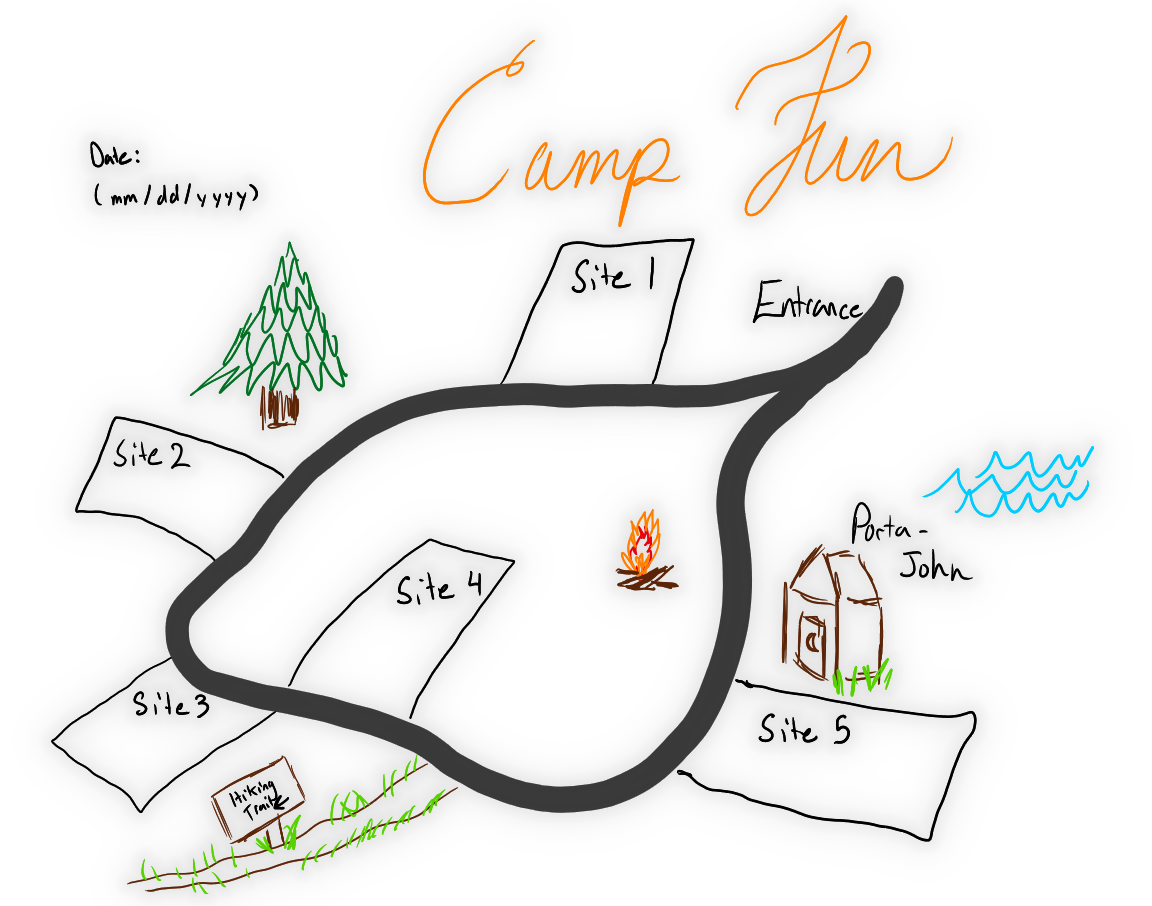 Camp Fun
Date:
(mm/dd/yyyy)
Site 1
Entrance
Site 2
Porta-
John
Site 4
Site 3
Site 5
Hiking
Trail